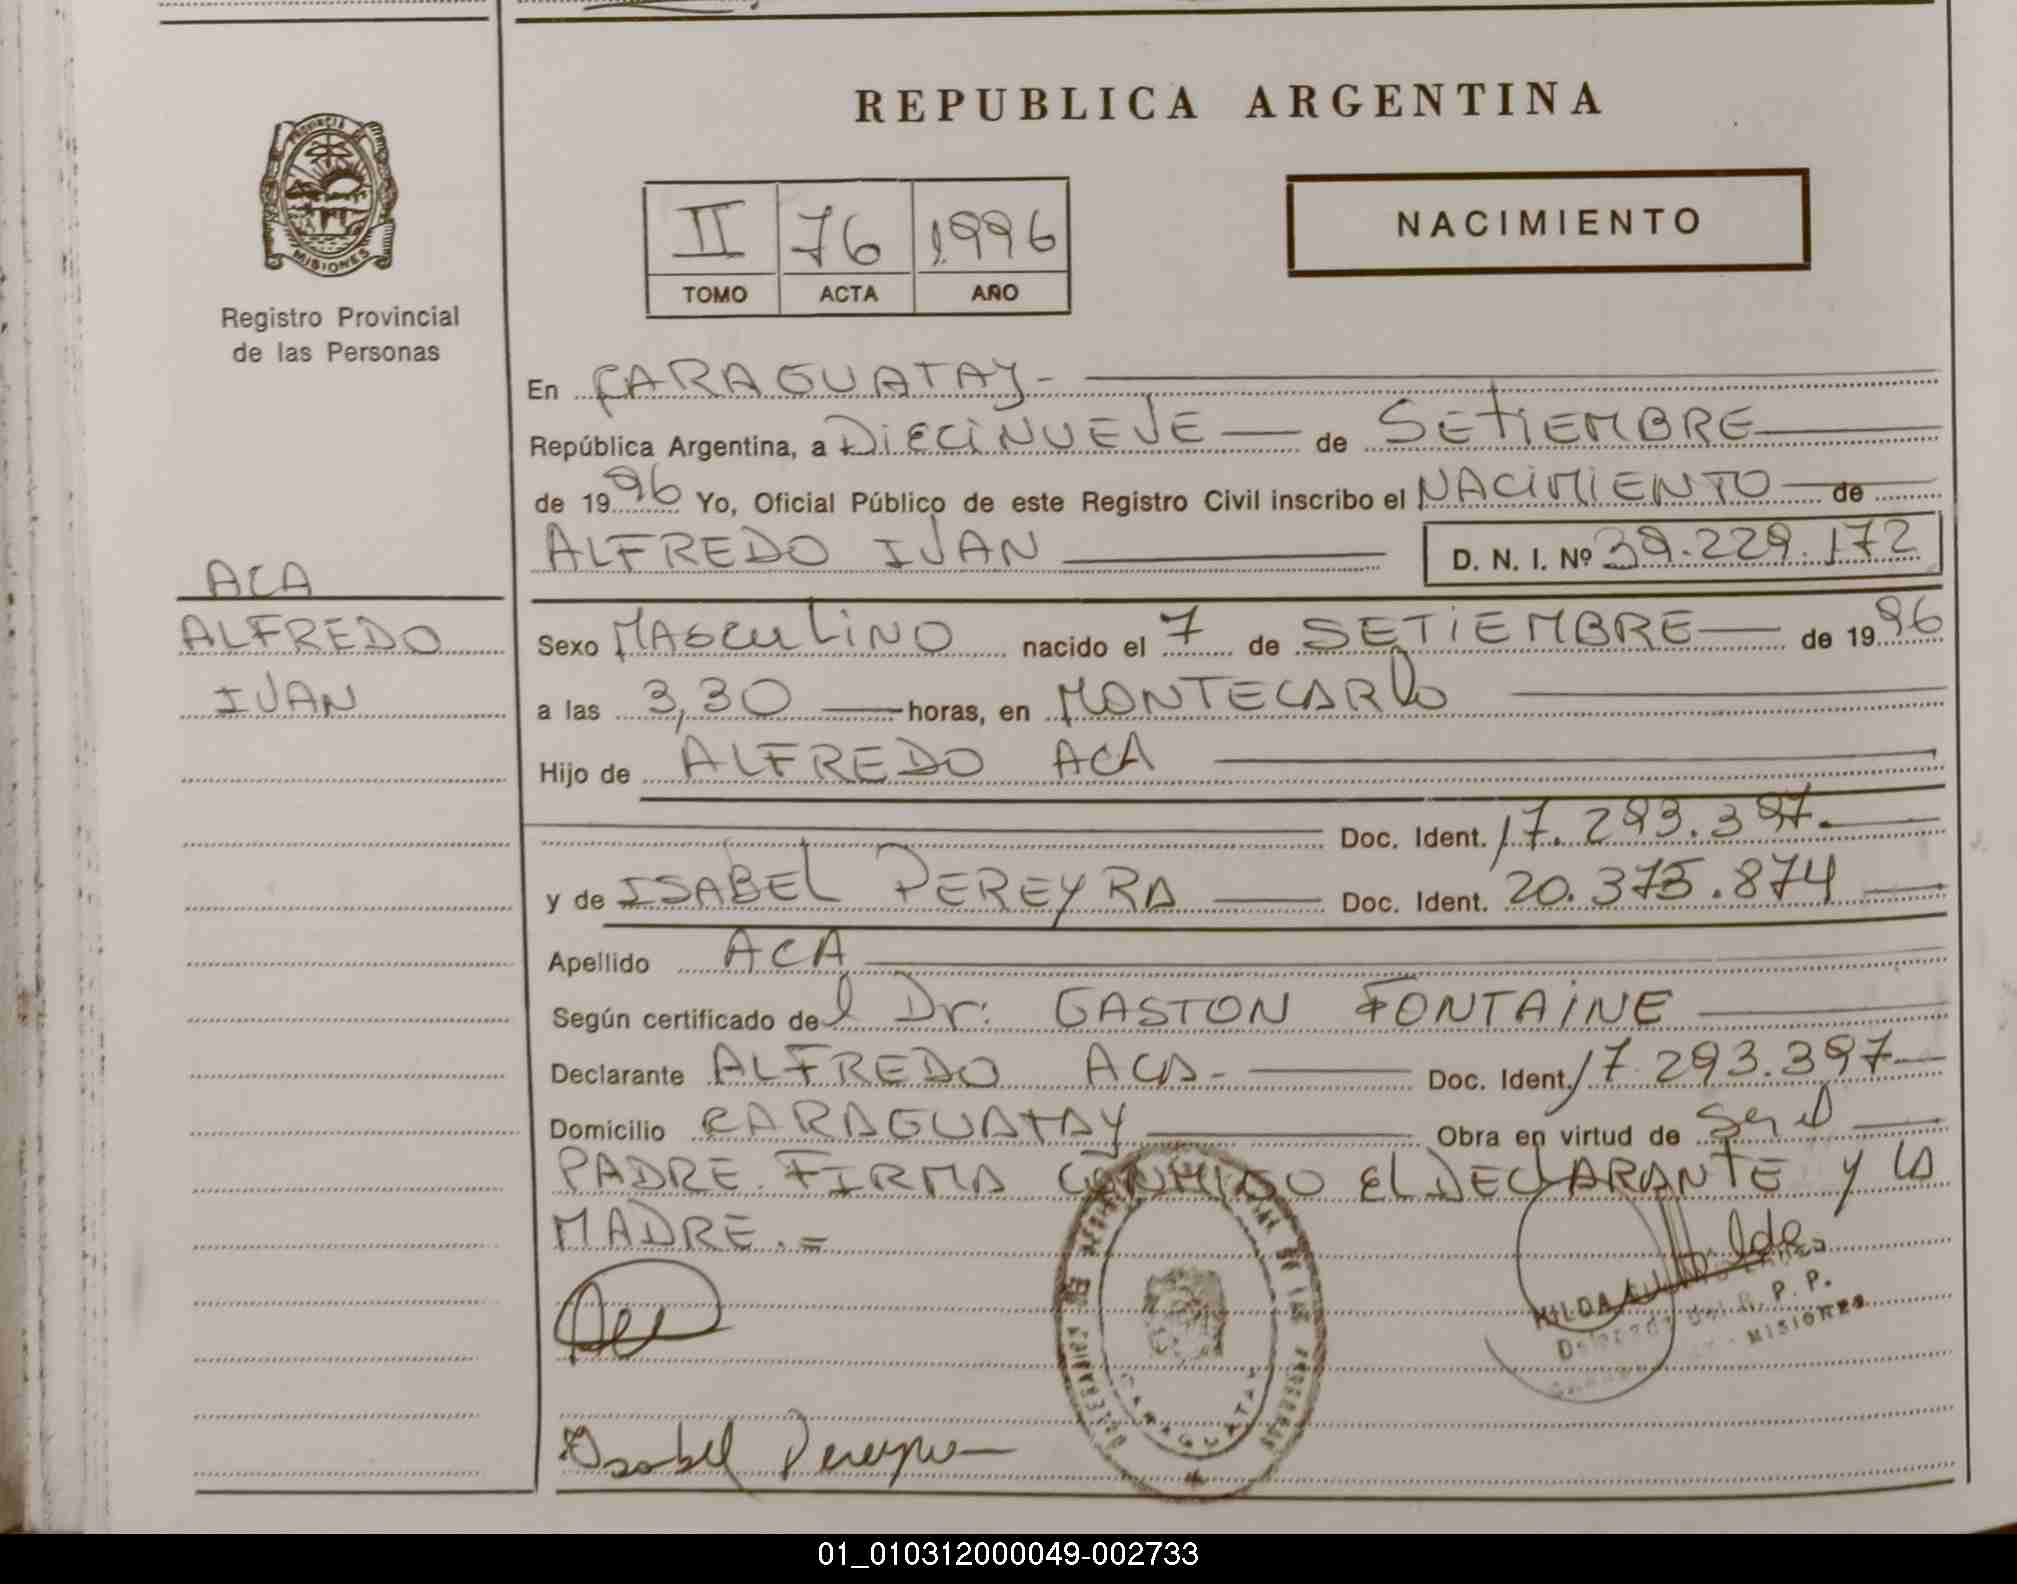 REPUBLICA ARGENTINA
PROVINCIA
MISIONES
Registro Provincial
de las Personas
II 76 1996
TOMO ACTA AÑO
NACIMIENTO
En CARAGUATAY-
República Argentina, a DiECiNUEVE de SETIEMBRE
de 1996 Yo, Oficial Público de este Registro Civil inscribo el NACiMiENTO de
ALFREDO IVAN D. N. I. Nº 39.229.172
ACA
ALFREDO
IVAN
Sexo MASCULiNO nacido el 7 de SETiEMBRE de 1996
a las 3,30 horas, en MONTECARlo
Hijo de ALFREDO ACA
Doc. Ident. 17.293.397.
y de ISABEL PEREYRA Doc. Ident. 20.375.874
Apellido ACA
Según certificado del Dr: GASTON FONTAiNE
Declarante ALFREDO ACA- Doc. Ident. 17.293.397
Domicilio CARAGUATAY Obra en virtud de Ser el
PADRE. FIRMA CONMIGO El DECLARANTE y LA
MADRE.=
HILDA
Delegada del R. P. P.
- MISIONES
CARAGUATAY
Isabel Pereyra
01_010312000049-002733